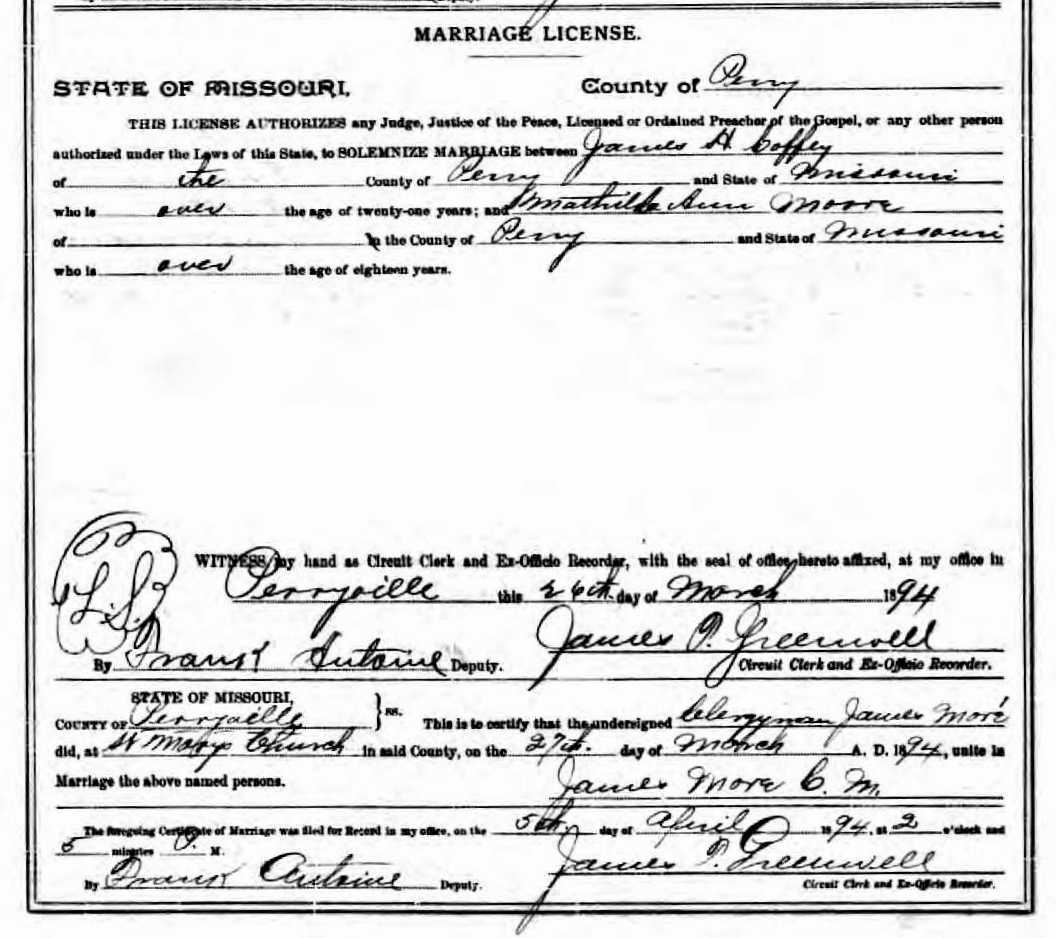 MARRIAGE LICENSE.
STATE OF MISSOURI, County of Perry
THIS LICENSE AUTHORIZES any Judge, Justice of the Peace, Licensed or Ordained Preacher of the Gospel, or any other person
authorized under the Laws of this State, to SOLEMNIZE MARRIAGE between James H Coffey
of the County of Perry and State of Missouri
who is over the age of twenty-one years; and Mathilda Ann Moore
of In the County of Perry and State of Missouri
who is over the age of eighteen years.
L.S. WITNESS my hand as Circuit Clerk and Ex-Officio Recorder, with the seal of office hereto affixed, at my office in
Perryville this 26th day of March 1894
James P. Greenwell
By Frank Antoine Deputy. Circuit Clerk and Ex-Officio Recorder.
STATE OF MISSOURI,
COUNTY OF Perryville } ss. This is to certify that the undersigned Clergyman James Moré
did, at St Marys Church in said County, on the 27th. day of March A. D. 1894, unite in
Marriage the above named persons. James More C. M.
The foregoing Certificate of Marriage was filed for Record in my office, on the 5th day of April 1894, at 2 o'clock and
5 minutes P. M. James P. Greenwell
By Frank Antoine Deputy. Circuit Clerk and Ex-Officio Recorder.